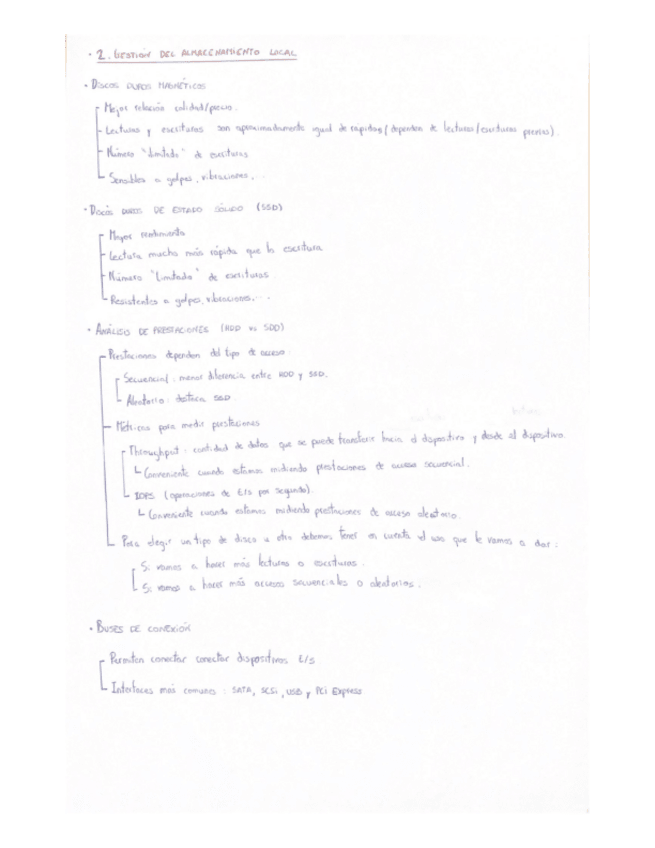 · 2. GESTIÓN DEL ALMACENAMIENTO LOCAL
· DISCOS DUROS MAGNÉTICOS
Mejor relación calidad/precio.
Lecturas y escrituras son aproximadamente igual de rápidas (dependen de lecturas/escrituras previas).
Número "ilimitado" de escrituras
Sensibles a golpes, vibraciones, ...
· DISCOS DUROS DE ESTADO SÓLIDO (SSD)
Mayor rendimiento
Lectura mucho más rápida que la escritura
Número "limitado" de escrituras
Resistentes a golpes, vibraciones, ...
· ANÁLISIS DE PRESTACIONES (HDD vs SDD)
Prestaciones dependen del tipo de acceso
Secuencial: menor diferencia entre HDD y SSD.
Aleatorio: destaca SSD
Métricas para medir prestaciones
Throughput: cantidad de datos que se puede transferir hacia el dispositivo y desde el dispositivo.
Conveniente cuando estamos midiendo prestaciones de acceso secuencial.
IOPS (operaciones de E/S por segundo).
Conveniente cuando estemos midiendo prestaciones de acceso aleatorio.
Para elegir un tipo de disco u otro debemos tener en cuenta el uso que le vamos a dar:
Si vamos a hacer más lecturas o escrituras.
Si vamos a hacer más accesos secuenciales o aleatorios.
· BUSES DE CONEXIÓN
Permiten conectar conectar dispositivos E/S
Interfaces más comunes: SATA, SCSi, USB y PCi Express